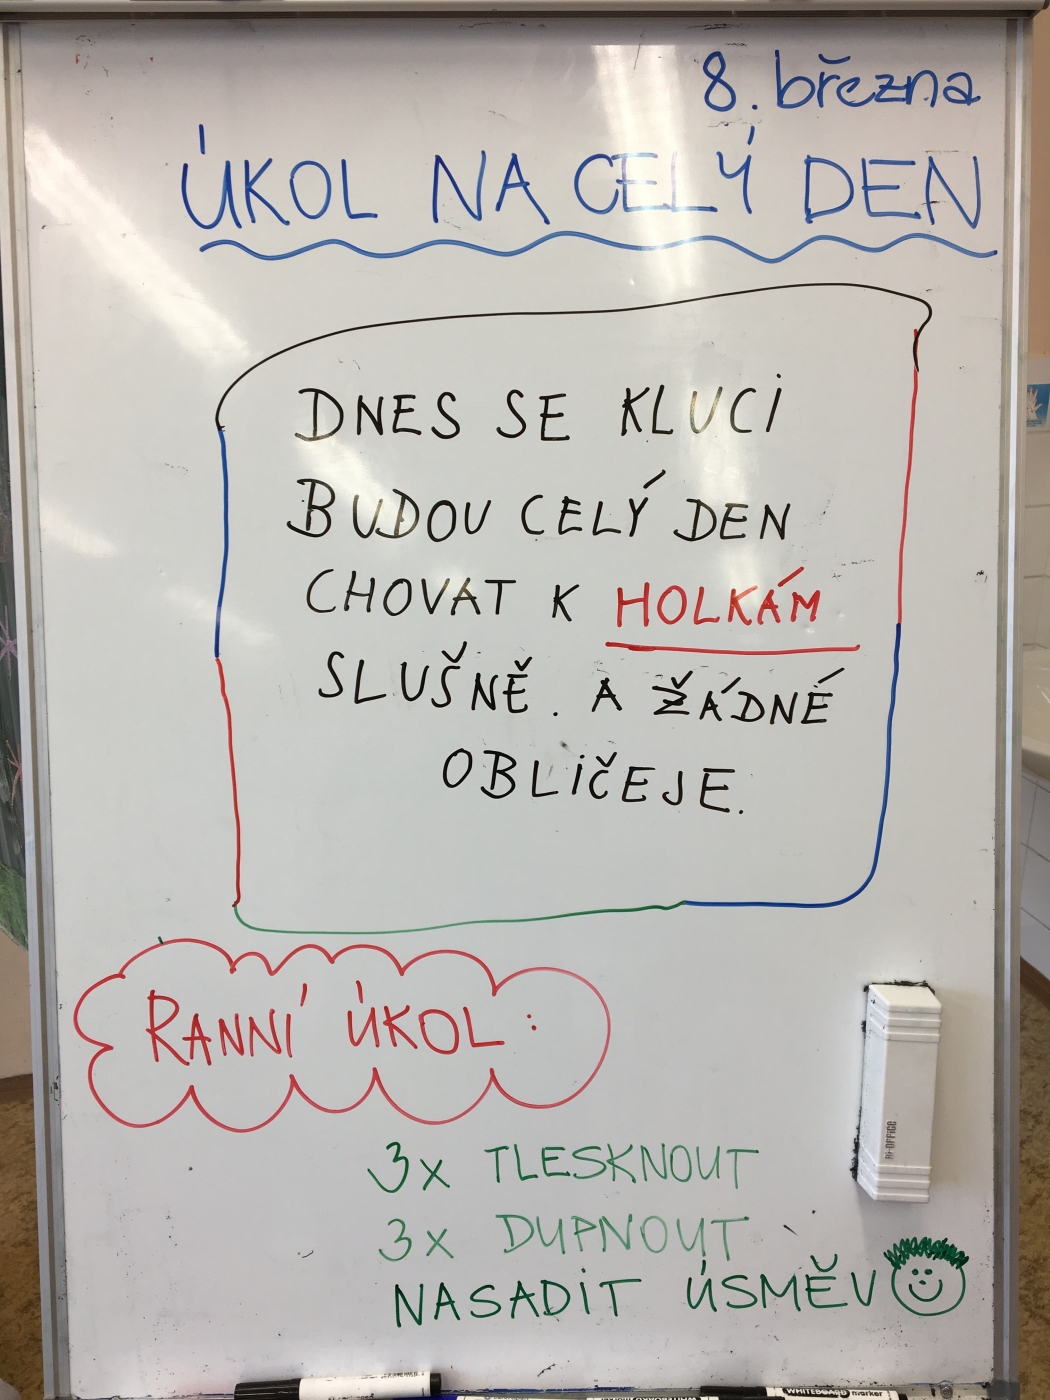 8. března
ÚKOL NA CELÝ DEN
DNES SE KLUCI
BUDOU CELÝ DEN
CHOVAT K HOLKÁM
SLUŠNĚ. A ŽÁDNÉ
OBLIČEJE.
RANNÍ ÚKOL:
3x TLESKNOUT
3x DUPNOUT
NASADIT ÚSMĚV
BI-OFFICE
WHITEBOARD marker